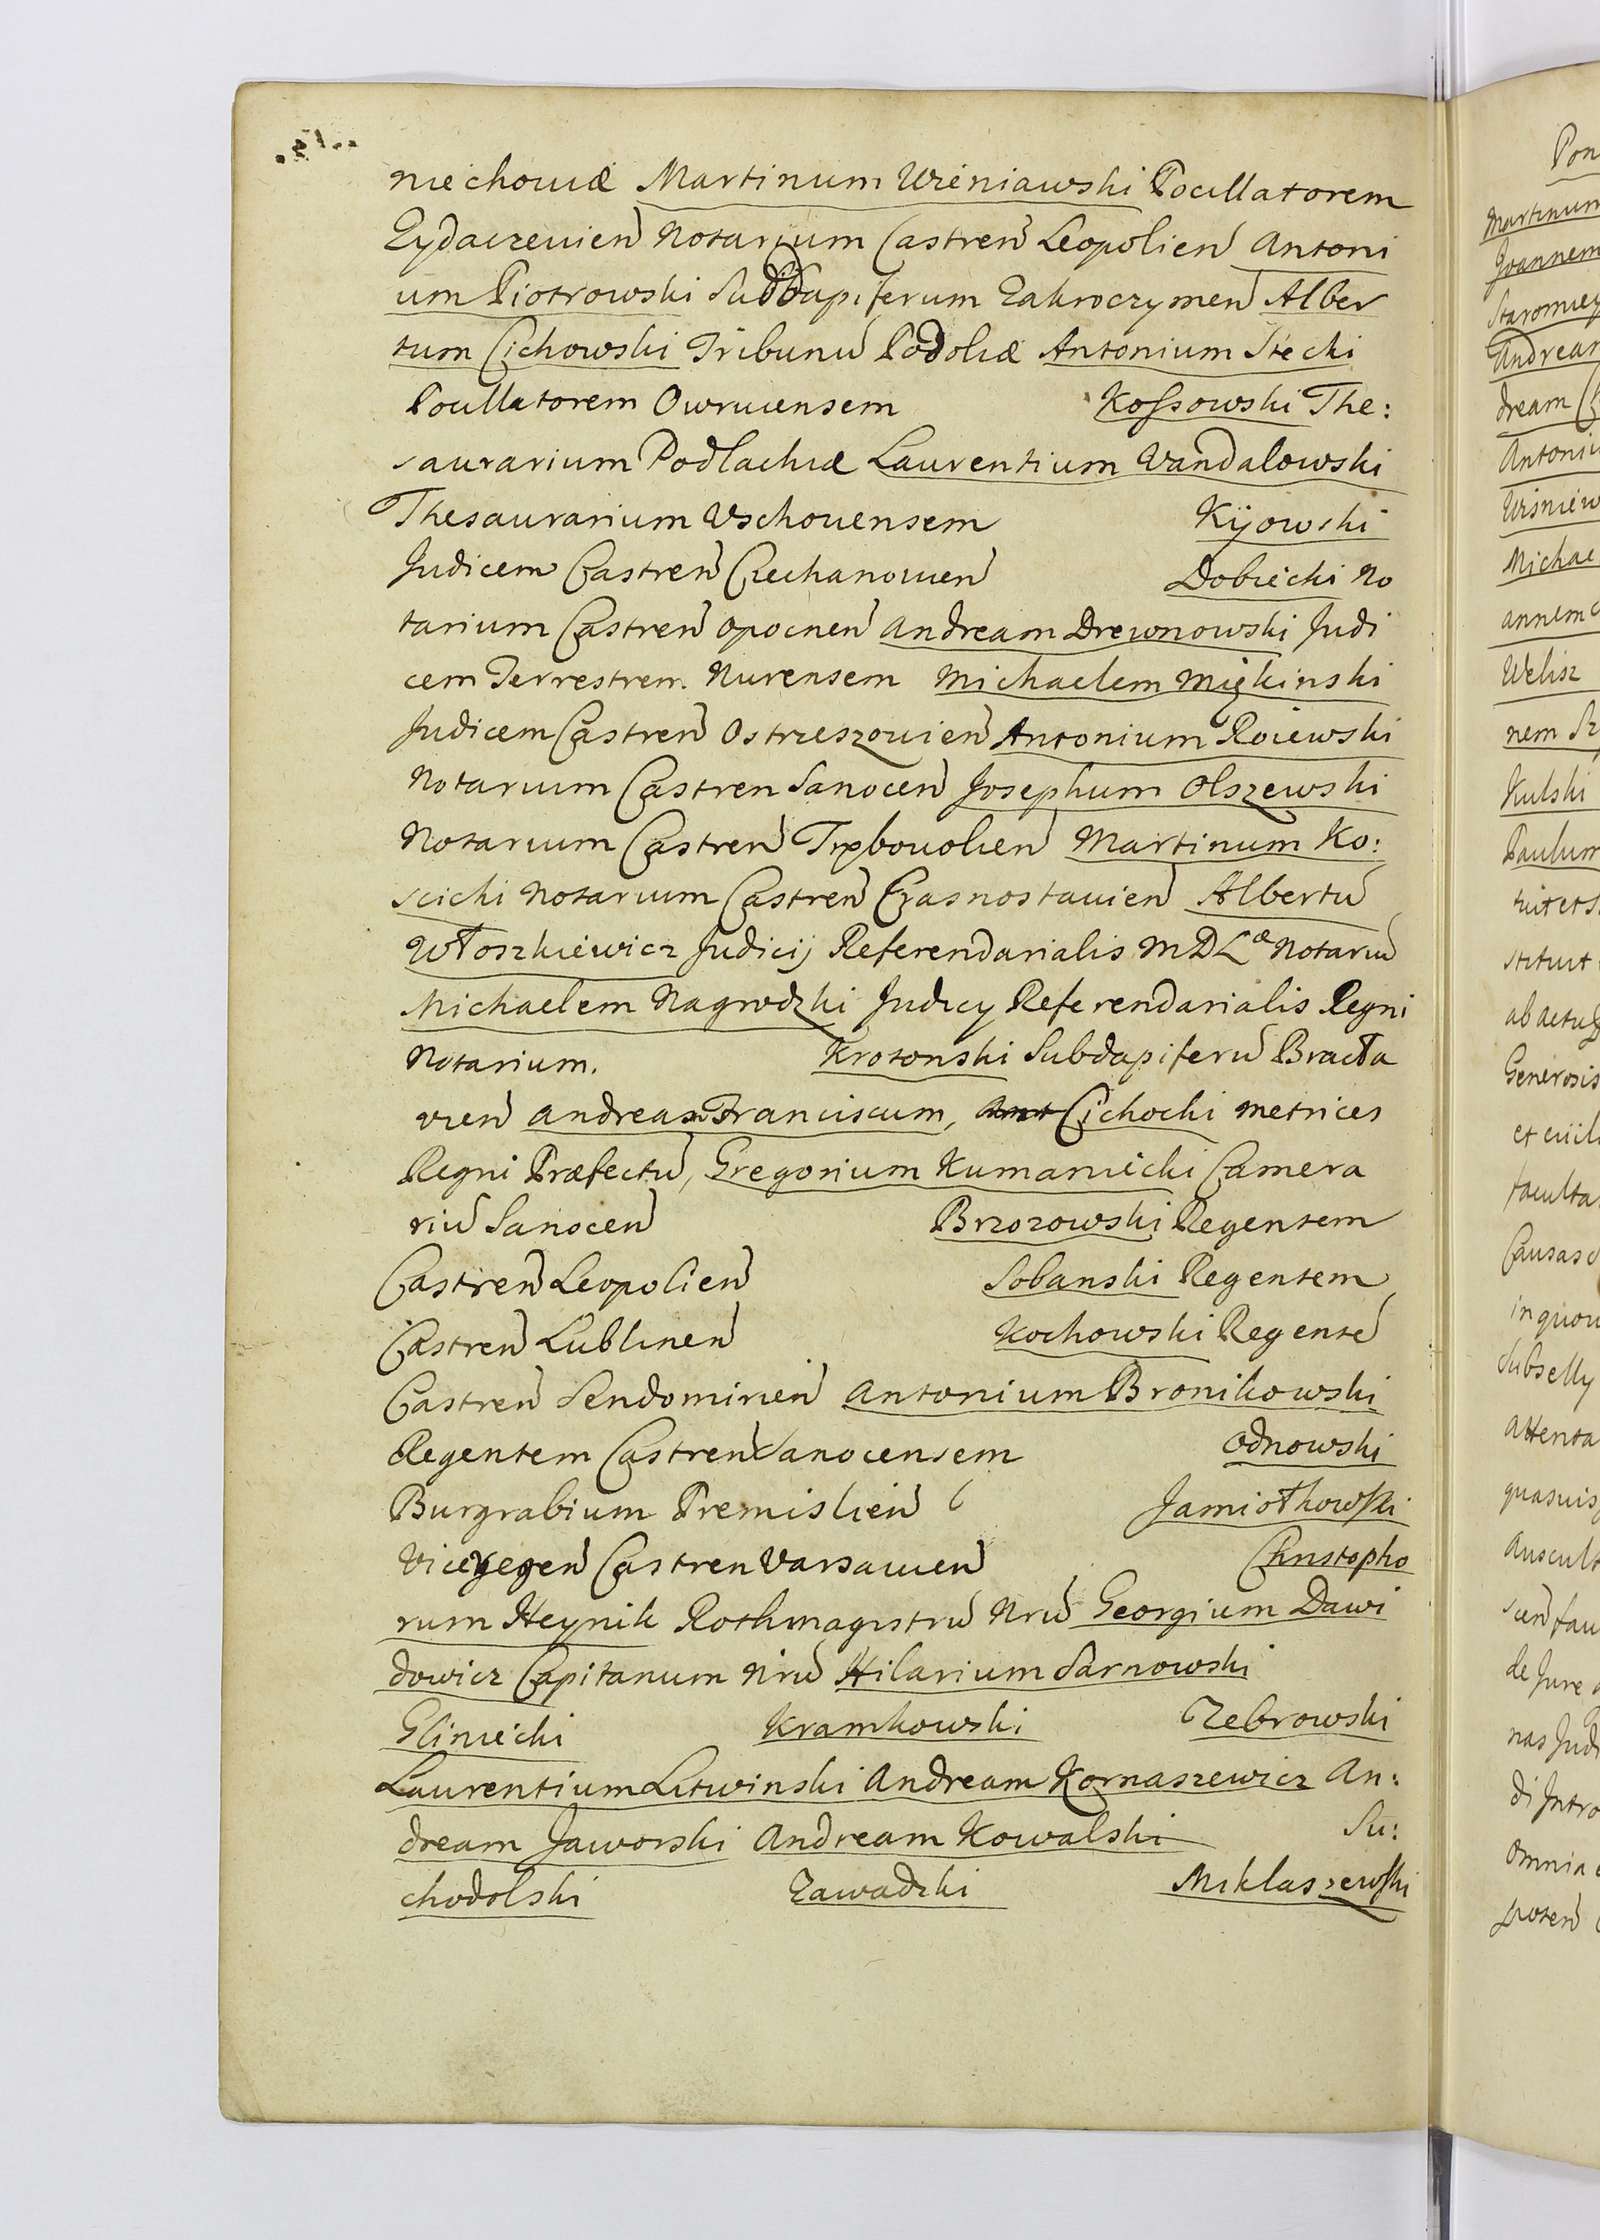 niechoviæ Martinum Wieniawski Pocillatorem
Zydaczevien Notarium Castren Leopolien Antoni
um Piotrowski Subdapiferum Zakroczymen Alber
tum Cichowski Tribunu Podoliæ Antonium Stecki
Pocillatorem Owrucensem Kossowski The:
saurarium Podlachiæ Laurentium Wandalowski
Thesaurarium Vschovensem Kijowski
Judicem Castren Ciechanovien Dobiecki No
tarium Castren Opocnen Andream Drewnowski Judi
cem Terrestrem Nurensem Michaelem Miękinski
Judicem Castren Ostrzeszovien Antonium Roiewski
Notarium Castren Sanocen Josephum Olszewski
Notarium Castren Trębovolien Martinum Ko:
scicki Notarium Castren Crasnostavien Albertu
Włoszkiewicz Judicij Referendarialis MDLæ Notariu
Michaelem Nagrodzki Judicy Referendarialis Regni
Notarium. Krotonski Subdapiferu Bracła
vien Andream Franciscum, Ant Cichocki Metrices
Regni Præfectu, Gregorium Kumaniecki Camera
riu Sanocen Brzozowski Regentem
Castren Leopolien Sobanski Regentem
Castren Lublinen Kochowski Regente
Castren Sendomirien Antonium Bronikowski
Regentem Castren Sanocensem Odnowski
Burgrabium Premislien Jamiołkowski
Viceregen Castren Varsavien Christopho
rum Heynik Rothmagistru Nru Georgium Dawi
dowicz Capitanum Nru Hilarium Sarnowski
Gliniecki Kramkowski Zebrowski
Laurentium Litwinski Andream Kornaszewicz An:
dream Jaworski Andream Kowalski Su:
chodolski Zawadzki Miklaszewski
Pon
Martinum
Joannem
Staromiey
Andream
dream
Antoniu
Wisniew
Michae
annem
Welisz
nem Sz
Kulski
Paulum
tuit et s
stituit
ab actu
Generosis
et ciuil
faculta
Causas
in quov
Subselly
Attenta
quasuis
Auscult
de Jure
nas Judi
di Intro
omnia